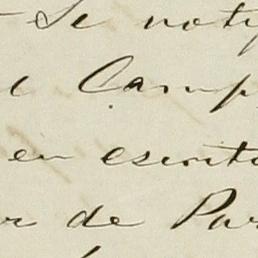 Se notif
l Camp
en escrito
or de Par